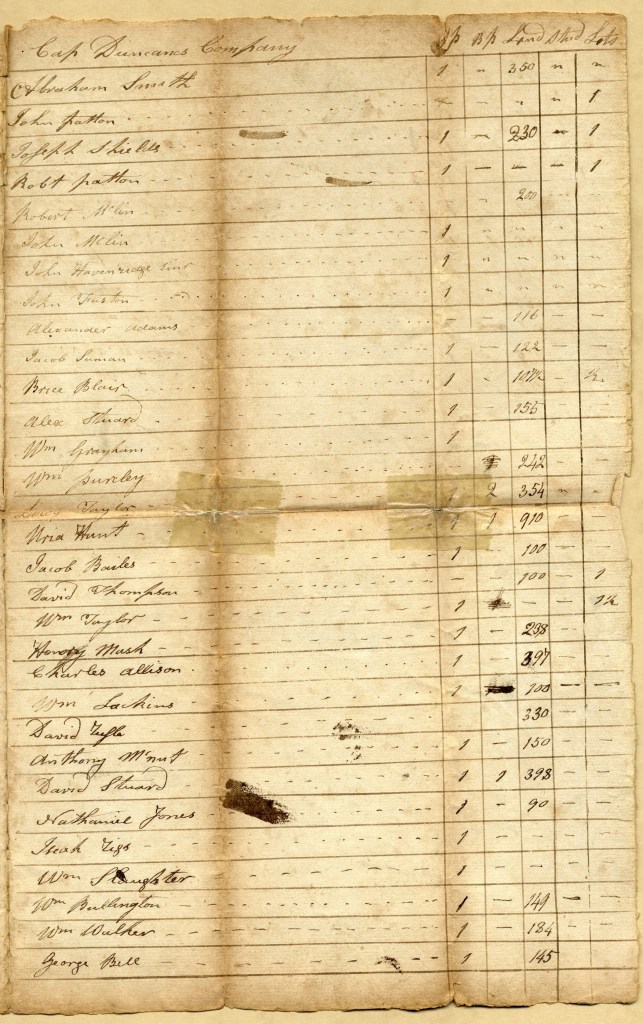 Cap Duncanes Company P BP Land Stud Lots
Abraham Smith 1 " 350 " "
John Patton - " " " 1
Joseph Shields 1 - 230 - 1
Robt Patton 1 - - - 1
Robert Mclin 200
John Mclin 1 " " " "
John Havenridge Senr 1 " " " "
John Fuston 1 " " " "
Alexander Adams - - 116 - -
Jacob Suman 1 - 122 - -
Brice Blair 1 - 107½ - ½
Alex Stuard 1 - 155 - -
Wm Grayham 1
Wm Pursley 242 - -
Taylor 1 2 354 " -
Uria Hunt 1 1 910 - -
Jacob Bailes 1 - 100 - -
David Thompson - - 100 - 1
Wm Taylor 1 - - 1½
Henry Mush 1 - 298 - -
Charles Allison 1 - 397 - -
Wm Lackins 1 100 - -
David 330 - -
Anthony Mcnut 1 - 150 - -
David Stuard 1 1 398 - -
Nathaniel Jones 1 - 90 - -
1 - - - -
Wm Slaughter 1 - - - -
Wm Bullington 1 - 149 - -
Wm Walker 1 - 184 - -
George Bell 1 - 145 - -